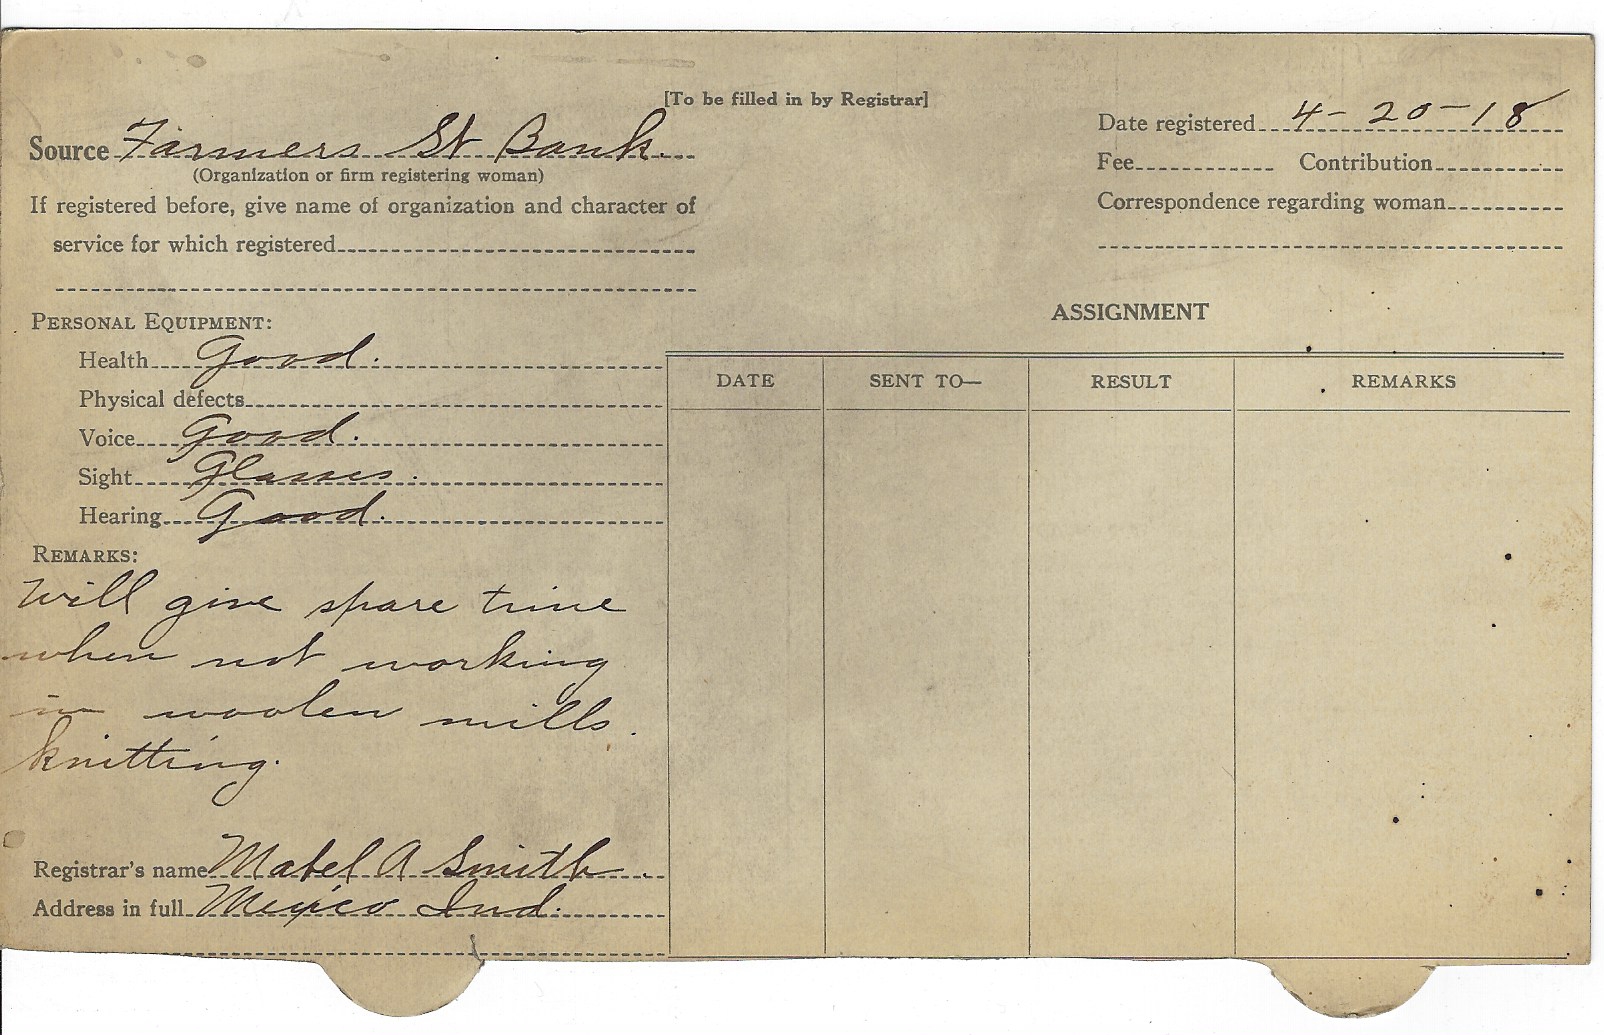 [To be filled in by Registrar]
Source Farmers St Bank.
(Organization or firm registering woman)
If registered before, give name of organization and character of
service for which registered
Personal Equipment:
Health Good.
Physical defects
Voice Good.
Sight Glasses.
Hearing Good.
Remarks:
Will give spare time
when not working
in woolen mills.
knitting.
Registrar's name Mabel A Smith.
Address in full Mexico Ind.
Date registered 4-20-18
Fee Contribution
Correspondence regarding woman
ASSIGNMENT
DATE SENT TO— RESULT REMARKS